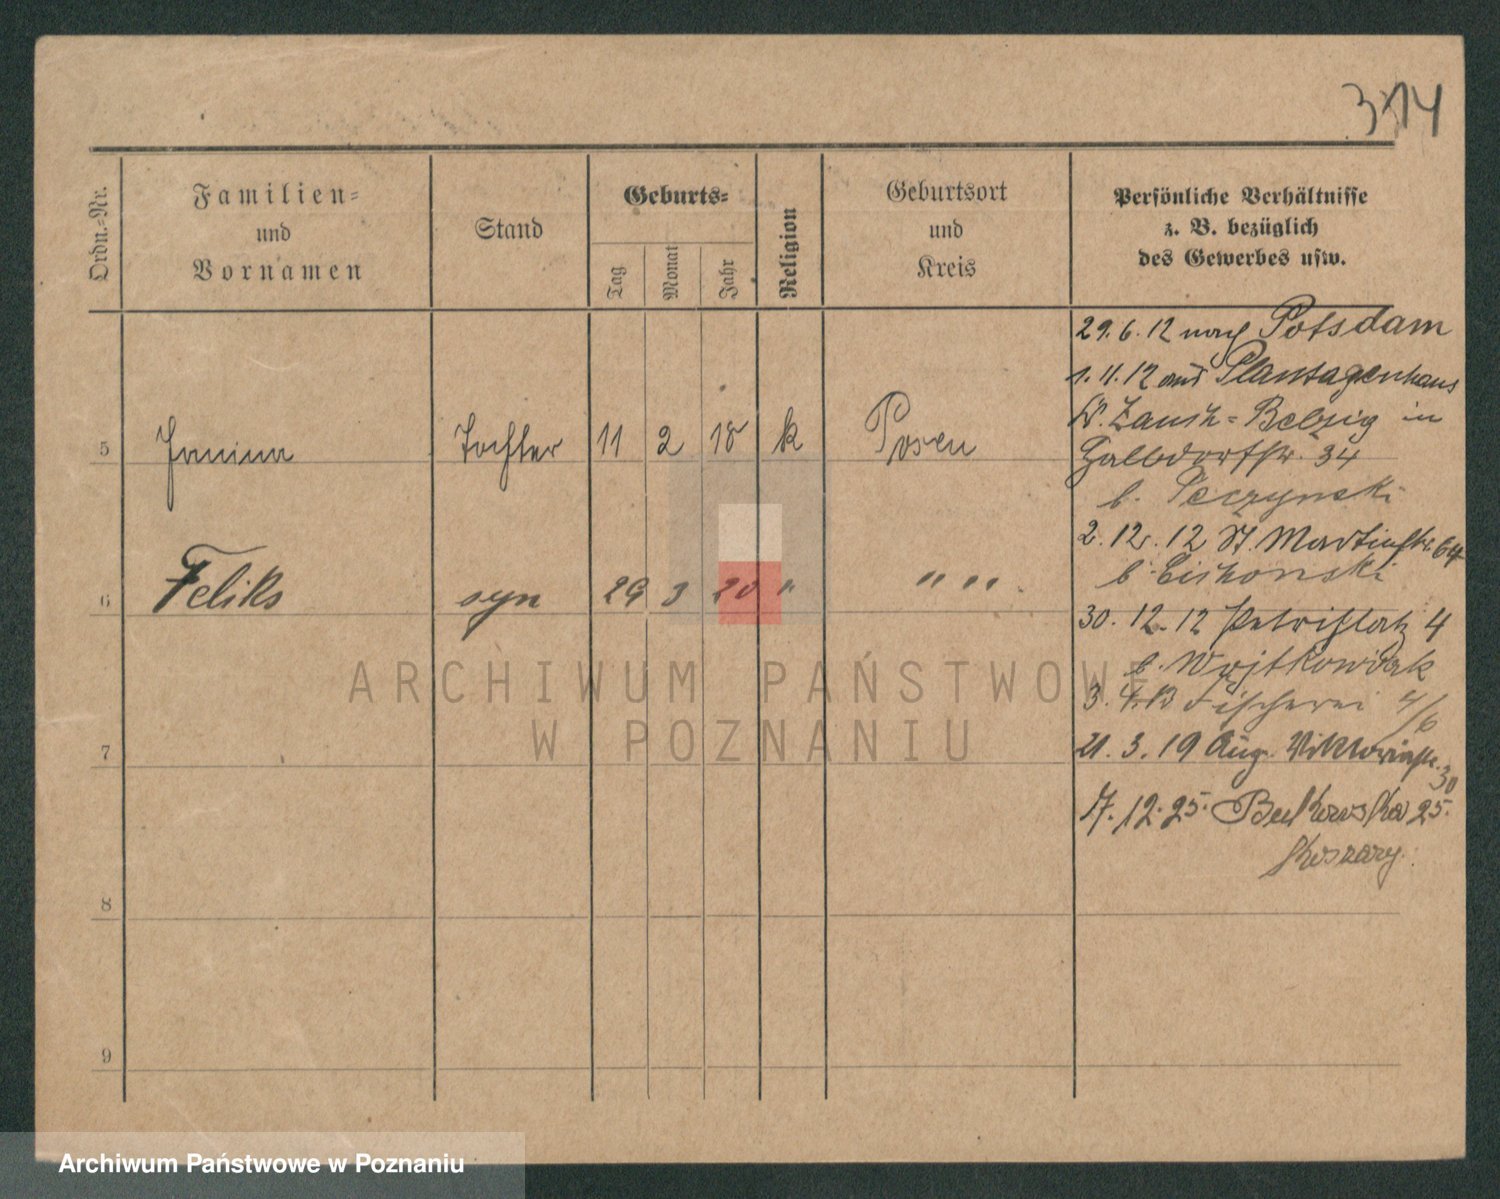 314
Ordn.-Nr.
Familien-
und
Vornamen
Stand
Geburts-
Tag
Monat
Jahr
Religion
Geburtsort
und
Kreis
Persönliche Verhältnisse
z. B. bezüglich
des Gewerbes usw.
29. 6. 12 nach Potsdam
1. 11. 12 aus Plantagenhaus
Belzig in
34
b.
2. 12. 12 St. Martinstr. 64
b.
30. 12. 12 Petriplatz 4
b. Wojtkowiak
3. 4. 13 Fischerei 4/6
21. 3. 19 Aug. Viktoriastr. 30
7. 12. 25. Bukowska 25.
Koszary.
5 Janina Tochter 11 2 18 k Posen
6 Feliks syn 29 3 20 " " "
7
8
9
ARCHIWUM PAŃSTWOWE
W POZNANIU
Archiwum Państwowe w Poznaniu